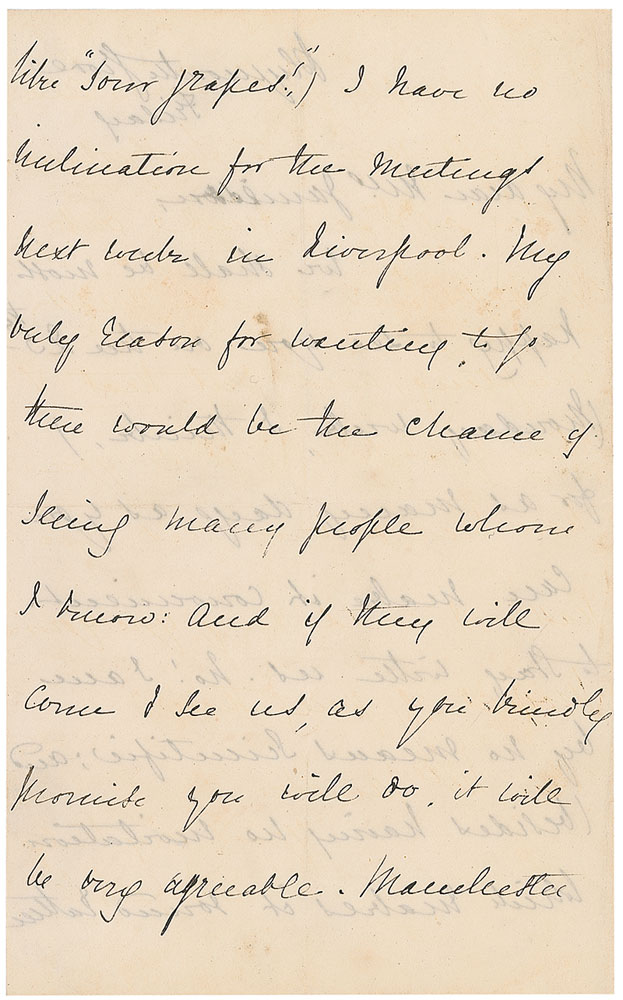 like "sour grapes!") I have no
inclination for the Meetings
next week in Liverpool. My
only reason for wanting to go
there would be the chance of
seeing many people whom
I know: and if they will
come & see us, as you kindly
promise you will do, it will
be very agreeable. Manchester